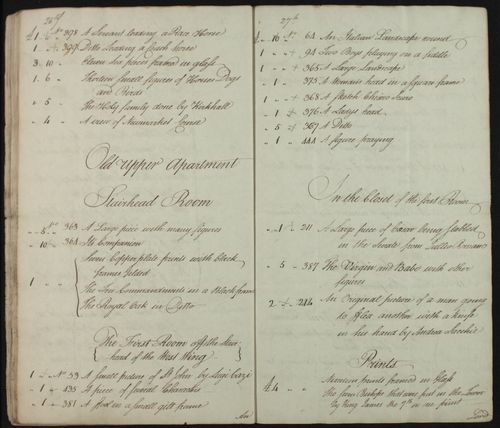 26th
1 N° 398 A Servant leading a Race Horse
1 399 Ditto leading a Coach horse
3 . 10 . Eleven six pieces framed in glass
1 . 6 . Thirteen Small figures of Horses Dogs
and Birds
" 5 " The Holy family done by
" 4 " A view of Newmarket Course
Old Upper Apartment
Stairhead Room
5 N° 363 A Large piece with many figures
10 364 Its Companion
Seven Copperplate prints with black
frames gilded
1 " " The Ten Commandments in a Black frame
The Royal Oak in Ditto
The First Room off the Stair
head of the West Wing
1 N° 59 A Small picture of St John by
1 435 A piece of Small
1 381 A Head in a Small gilt frame
An
27th
16 N° 64 An Italian Landscape round
1 94 Two Boys playing on a fiddle
1 365 A Large Landscape
1 375 A Womans head in a Square frame
1 368 A Sketch Chiaro Scuro
1 376 A Ladys head
5 367 A Ditto
1 444 A figure praying
In the Closet of the first Room
1 211 A Large piece of Cæsar being stabbed
in the Senate from Julio Romano
" 5 " 387 The Virgin and Babe with other
figures
2 246 An Original picture of a man going
to Flea another with a knife
in his hand by Andrea Sacchi
Prints
4 " Nineteen prints framed in Glass
The four Bishops that were put in the Tower
by King James the 7th in one print